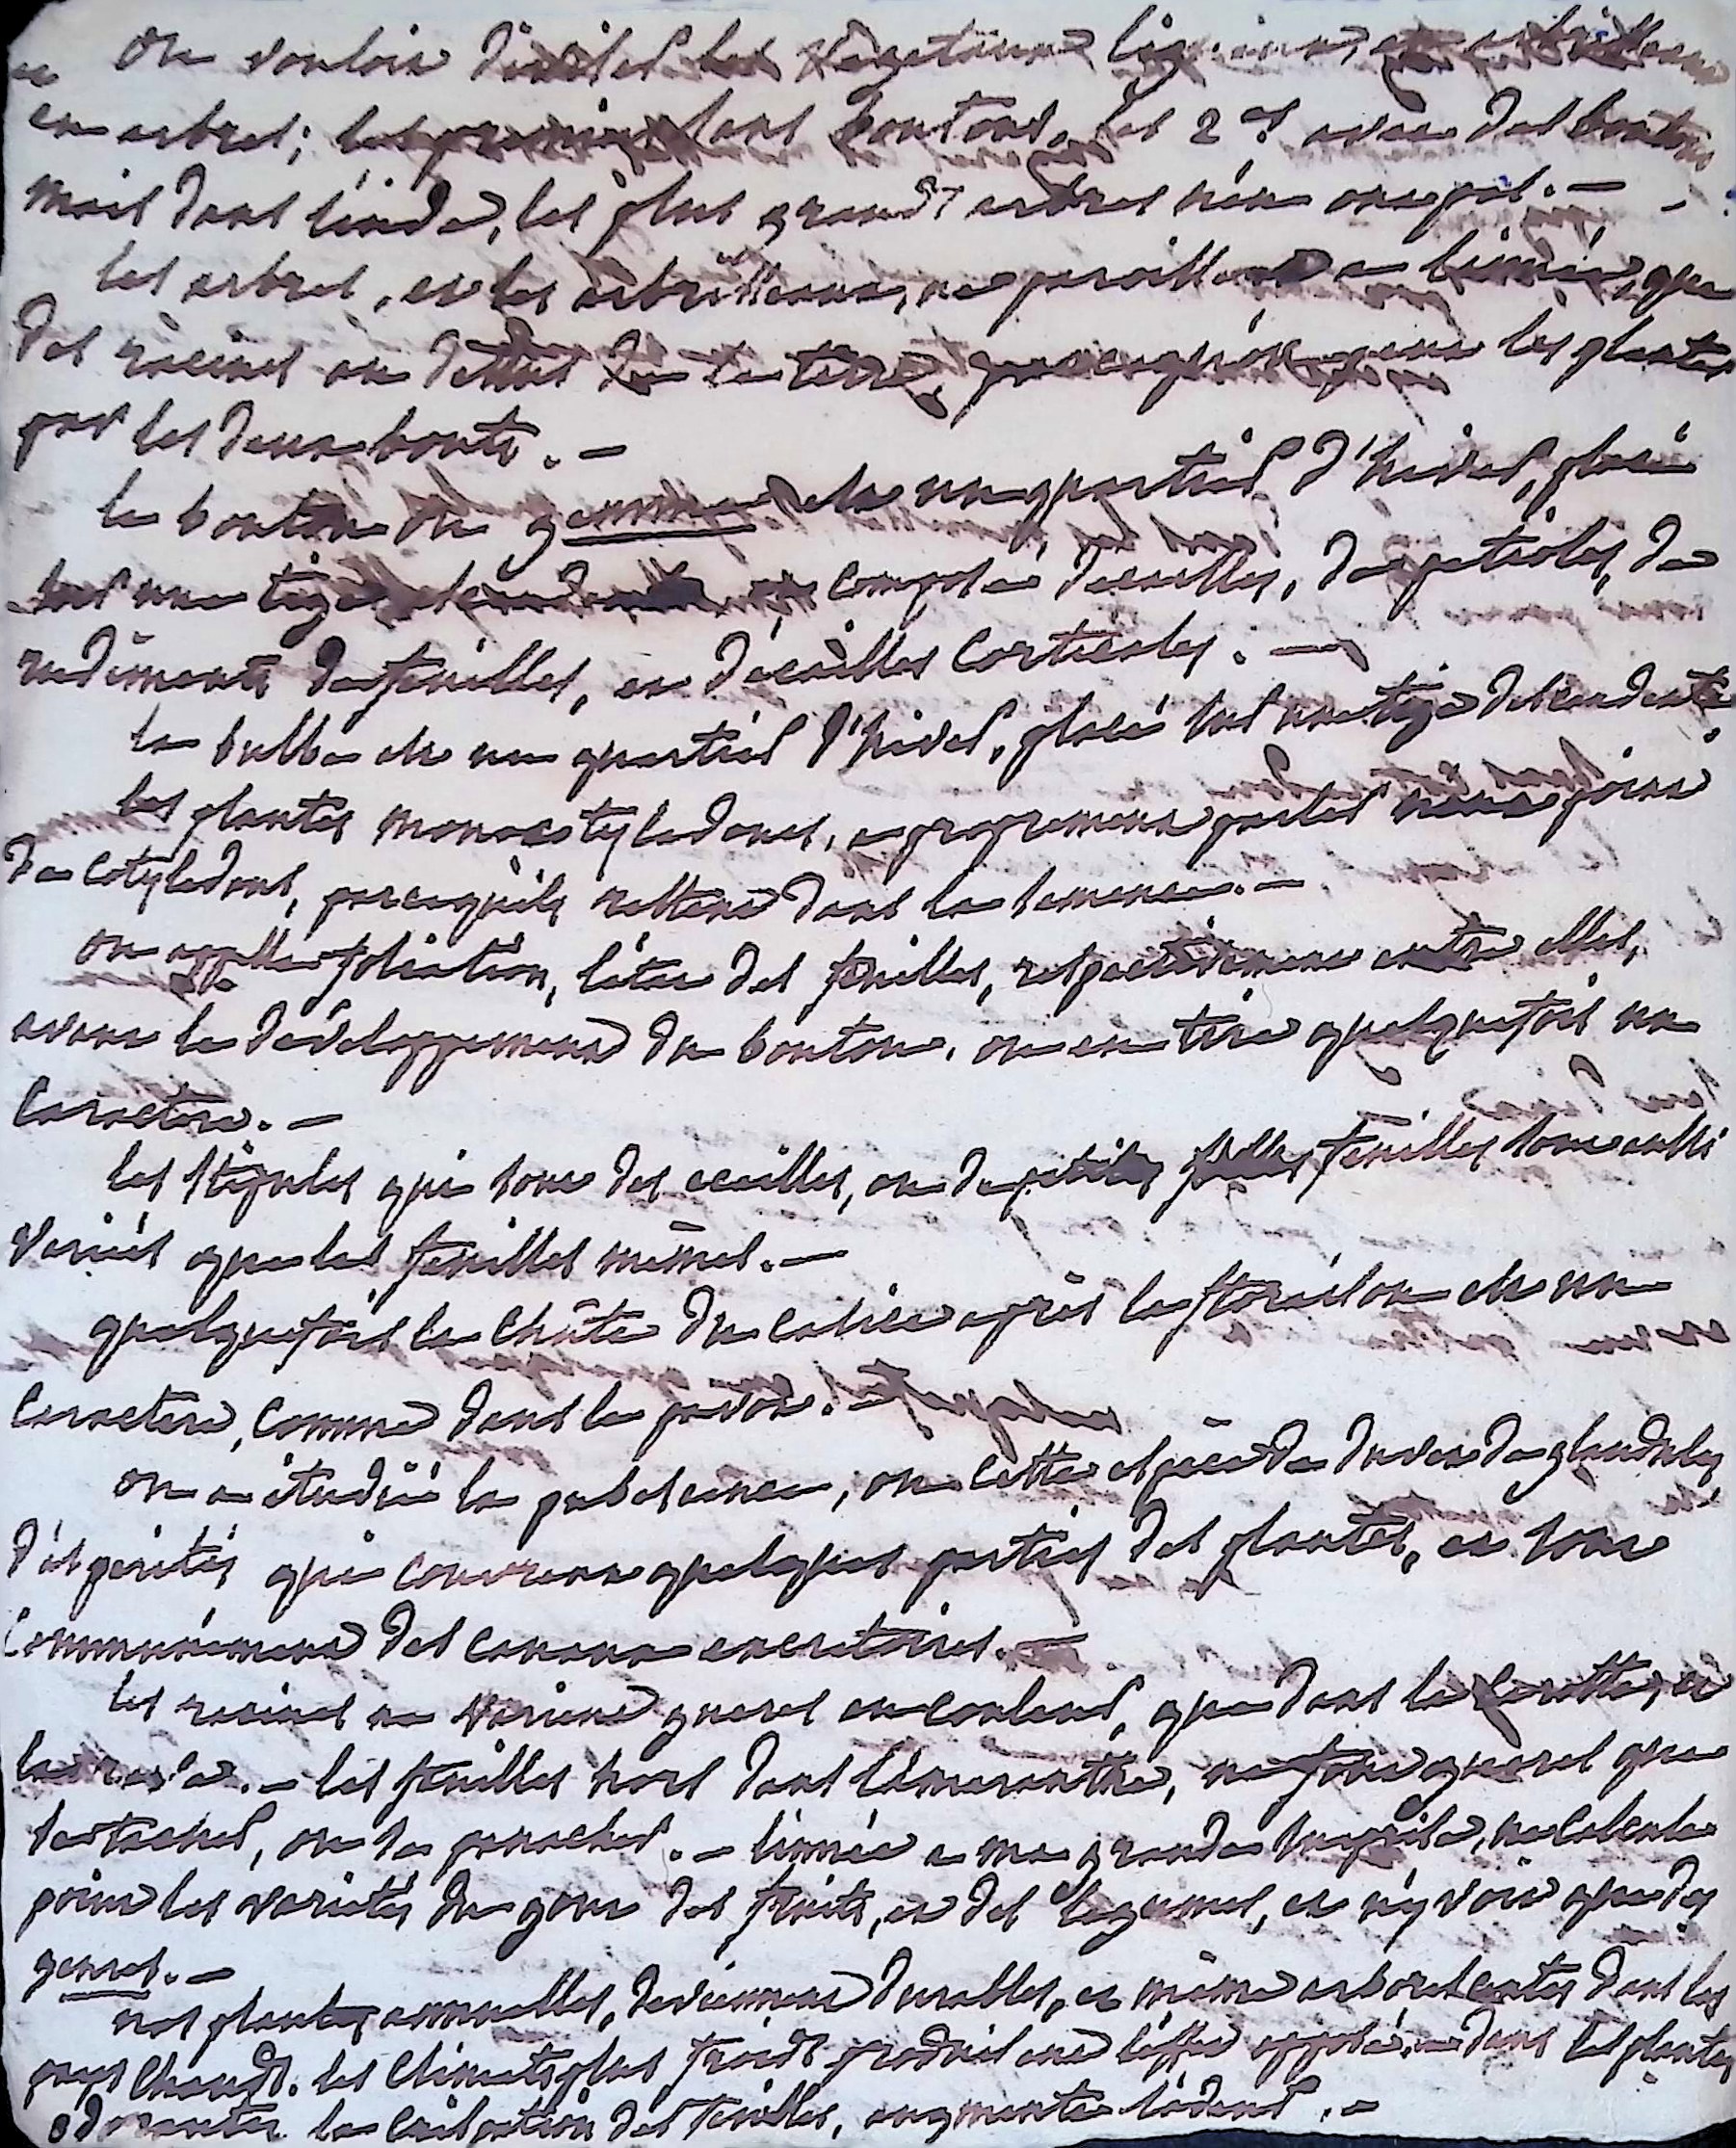 on vouloit diviser les vegetaux ligneux en arbrisseaux
en arbres; les premiers sans boutons, les 2es avec des boutons
mais dans l'inde, les plus grands arbres n'en ont pas. —
les arbres, et les arbrisseaux, ne paroissent a linnée, que
des racines au dessus de la terre, parcequ'on peut les planter
par les deux bouts. —
le bouton ou gemma est un quartier d'hiver, placé
sur une tige composée d'ecailles, de petioles, de
rudiments de feuilles, et d'écailles corticales. —
la bulbe est un quartier d'hiver, placé sur une tige descendante
les plantes monocotyledones, a proprement parler n'ont point
de cotyledons, parcequ'ils restent dans la semence. —
on appelle foliation, l'état des feuilles, respectivement entre elles,
avant le développement du bouton. on en tire quelquefois un
caractere. —
les stipules qui sont des ecailles, ou de petites feuilles sont aussi
variées que les feuilles mêmes. —
quelquefois la chûte du calice après la floraison est un
caractere, comme dans le pavot. —
on a étudié la pubescence, ou cette espèce de duvet de glandules,
d'asperités qui couvrent quelques parties des plantes, et sont
communément des canaux excretoires. —
les racines ne varient gueres en couleur, que dans la carotte, et
la rave. — les feuilles hors dans l'amaranthe, ne font gueres que
se tacher, ou se panacher. — linnée a ma grande surprise, ne calcule
point les varietés du gout des fruits, et des legumes, et n'y voit que des
genres. —
nos plantes annuelles, deviennent durables, et même arborescentes dans les
pays chauds. les climats plus froids produisent l'effet opposé. — dans les plantes
odorantes la crispation des feuilles, augmente l'odeur. —